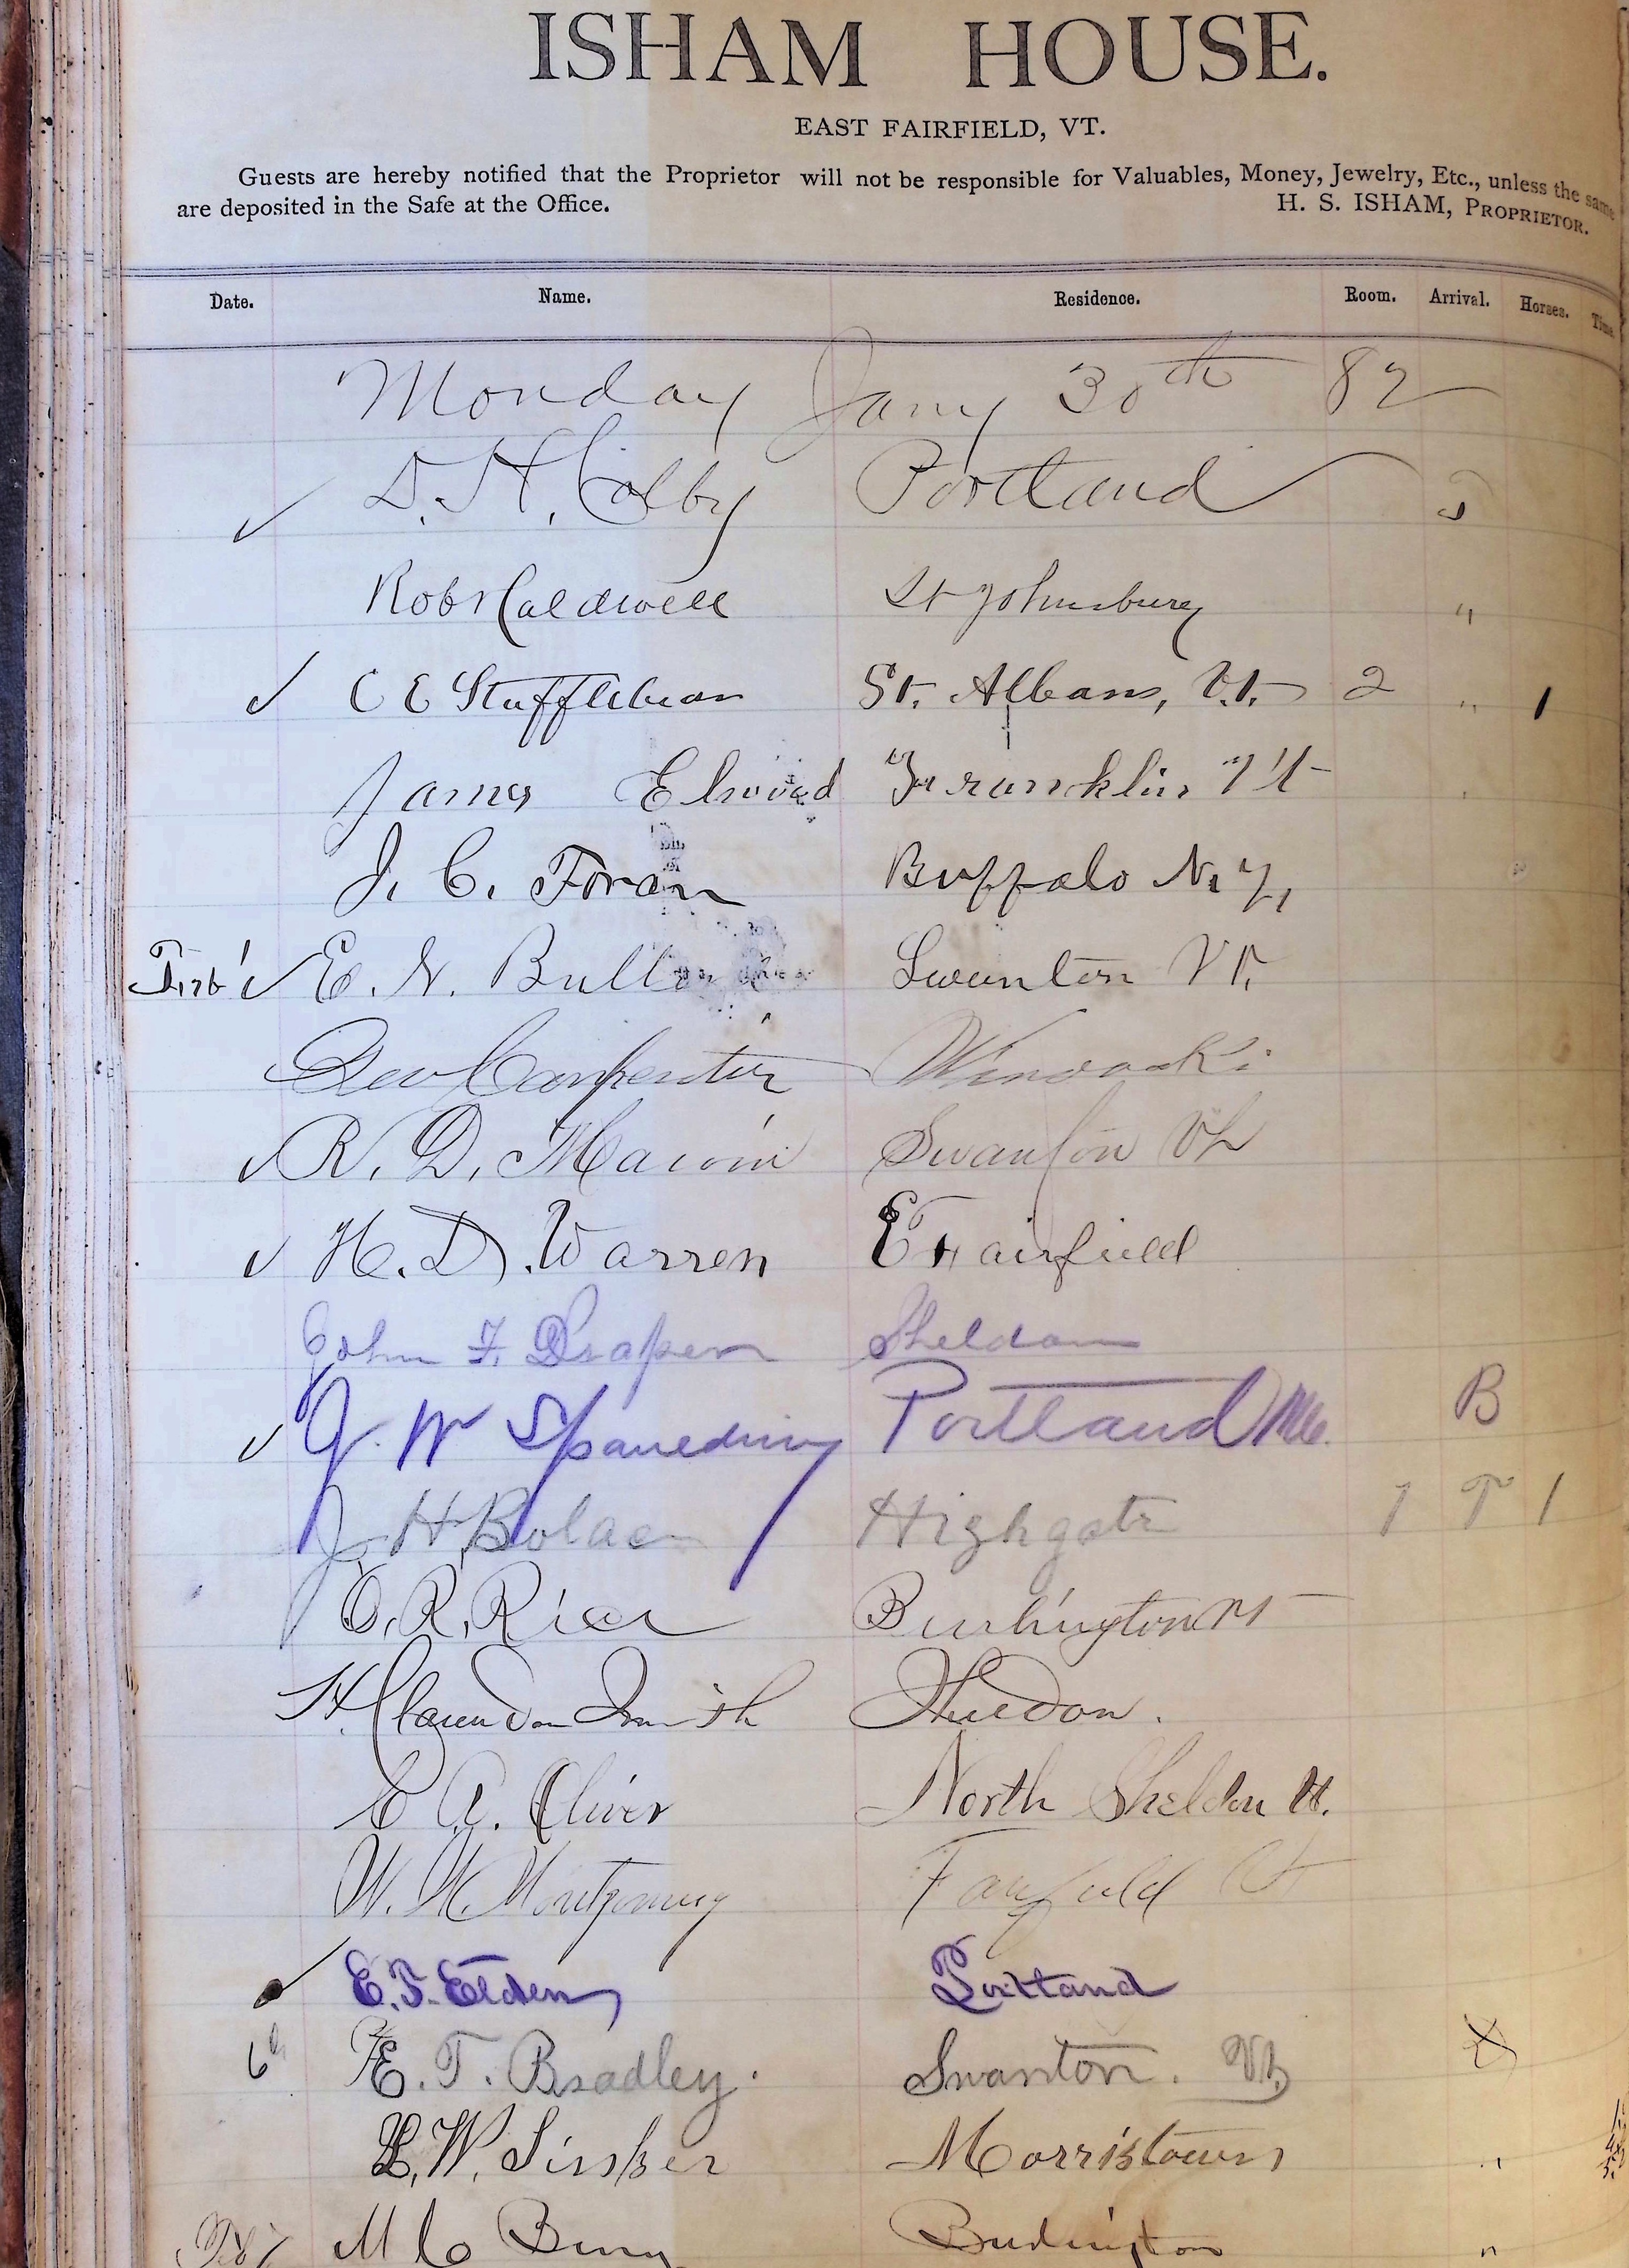 ISHAM HOUSE.
EAST FAIRFIELD, VT.
Guests are hereby notified that the Proprietor will not be responsible for Valuables, Money, Jewelry, Etc., unless the same
are deposited in the Safe at the Office. H. S. ISHAM, PROPRIETOR.
Date. Name. Residence. Room. Arrival. Horses. Time
Monday Jany 30th 82
D. H. Colby Portland
Robt Caldwell St Johnsbury "
C E Stufflebean St. Albans, Vt. 2 " 1
James Elwood Franklin Vt
J. C. Foran Buffalo N. Y.
E. N. Swanton Vt.
Geo Carpenter Winooski
R. D. Marvin Swanton Vt
H. D. Warren E Fairfield
John F. Draper Sheldon
J. W Spaulding Portland Me. B
J H Highgate 1 T 1
O. R. Rice Burlington Vt
H. Clarendon Smith Sheldon.
C A. Oliver North Sheldon Vt.
W. W. Montgomery Fairfield Vt
E. F. Elden Portland
6th E. T. Bradley. Swanton. Vt
L. W. Morristown "
Feb 7 M C Burlington "